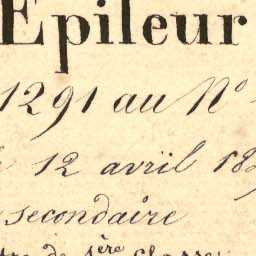 Epileur
1291 au N°
12 avril 18
secondaire
de 1ère classe